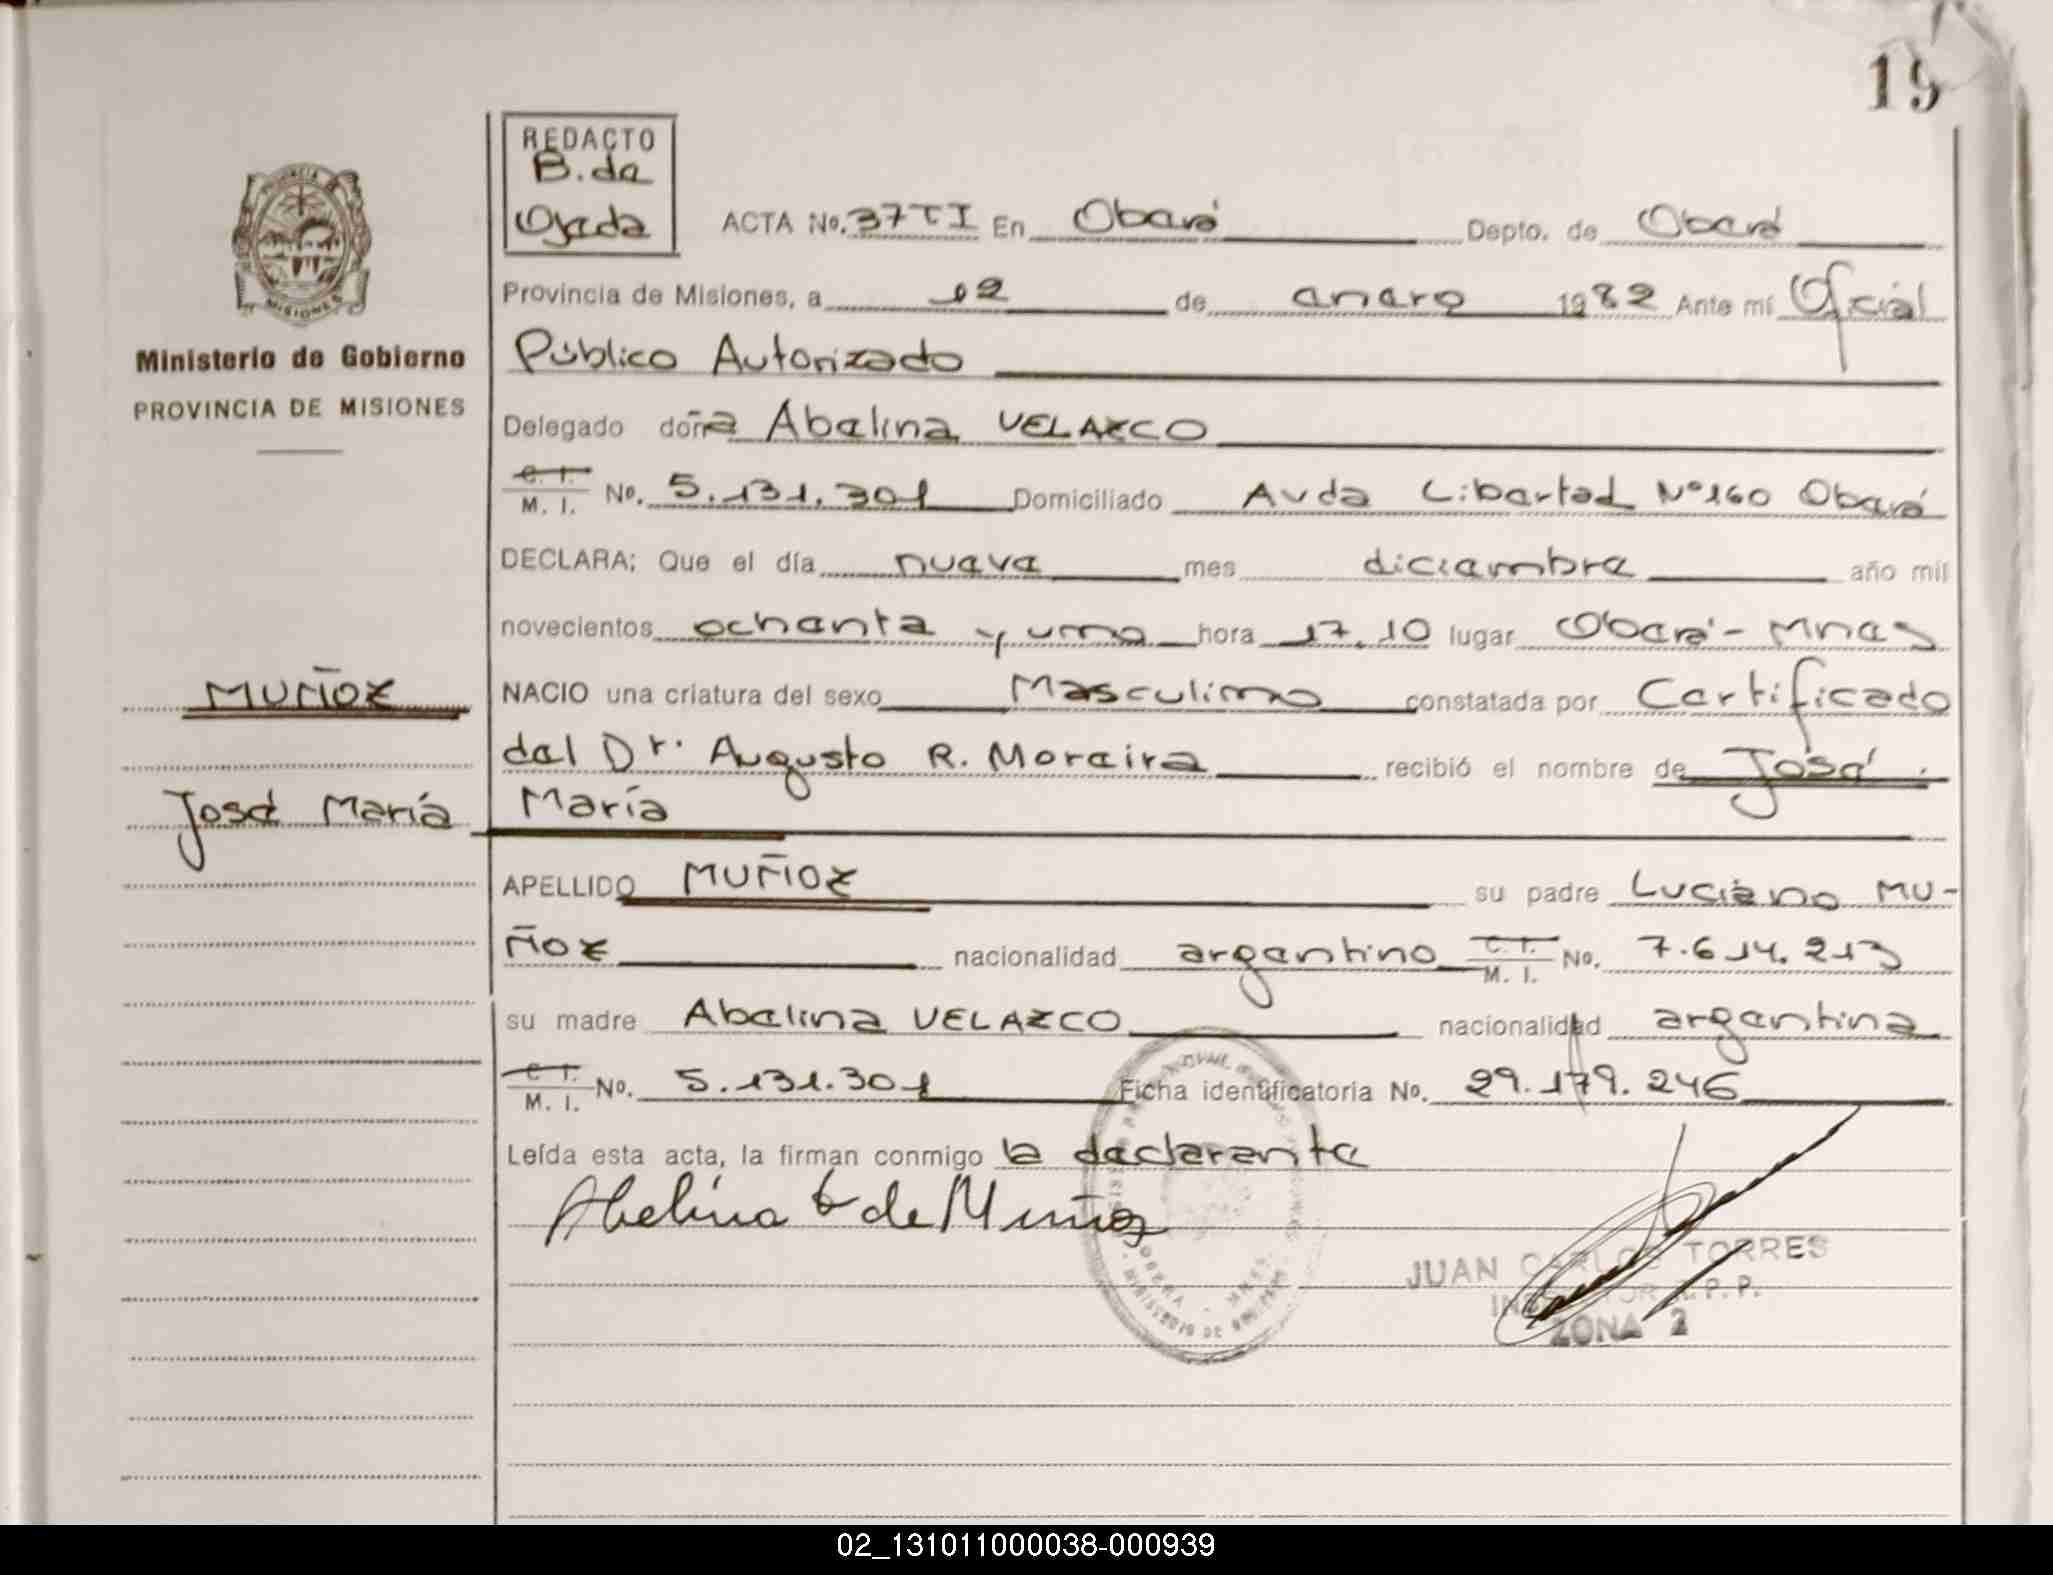 19
REDACTO
B. de
Ojeda
ACTA No. 37 TI En Oberá Depto. de Oberá
Provincia de Misiones, a 12 de enero 1982 Ante mí Oficial
Ministerio de Gobierno
PROVINCIA DE MISIONES
Público Autorizado
Delegado doña Abelina VELAZCO
C. I.
M. I. No. 5.131.301 Domiciliado Avda Libertad Nº 160 Oberá
DECLARA; Que el día nueve mes diciembre año mil
novecientos ochenta y uno hora 17.10 lugar Oberá - Mnes
MUÑOZ
NACIO una criatura del sexo Masculino constatada por Certificado
del Dr. Augusto R. Moreira recibió el nombre de José
José María
María
APELLIDO MUÑOZ su padre Luciano MU-
ÑOZ nacionalidad argentino C. I. M. I. No. 7.614.213
su madre Abelina VELAZCO nacionalidad argentina
C. I.
M. I. No. 5.131.301 Ficha identificatoria No. 29.179.246
Leída esta acta, la firman conmigo la declarante
Abelina de Muñoz
JUAN CARLOS TORRES
R.P.P.
ZONA 2
02_131011000038-000939